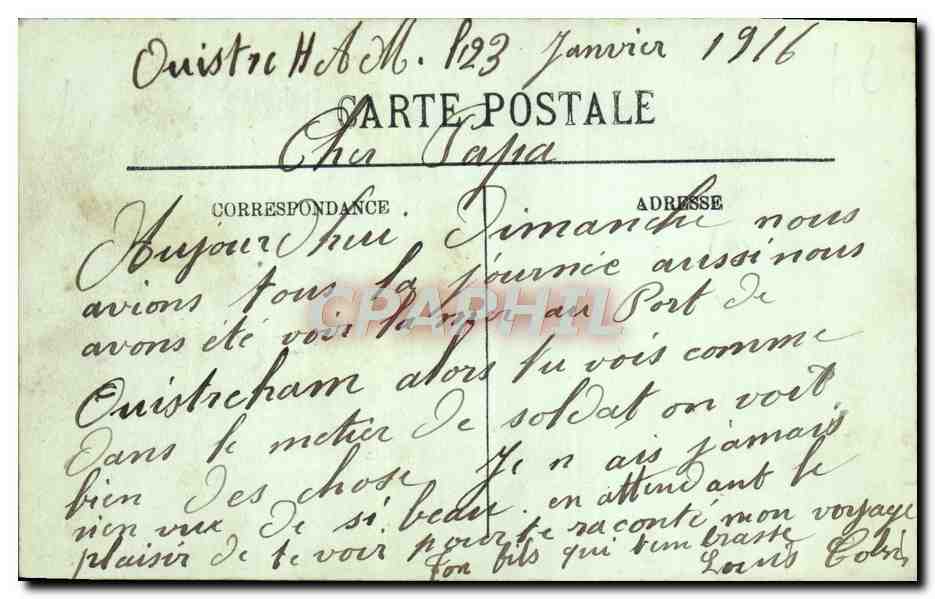 OuistreHAM. 23 Janvier 1916
CARTE POSTALE
Cher Papa
CORRESPONDANCE
ADRESSE
Aujour d'hui Dimanche nous
avions tous la journée aussi nous
avons été voir la mer au Port de
CPAPHIL
Ouistreham alors tu vois comme
dans le metier de soldat on voit
bien des chose Je n ais jamais
rien vue de si beau en attendant le
plaisir de te voir pour te raconté mon voyage
ton fils qui t'embrasse
Louis